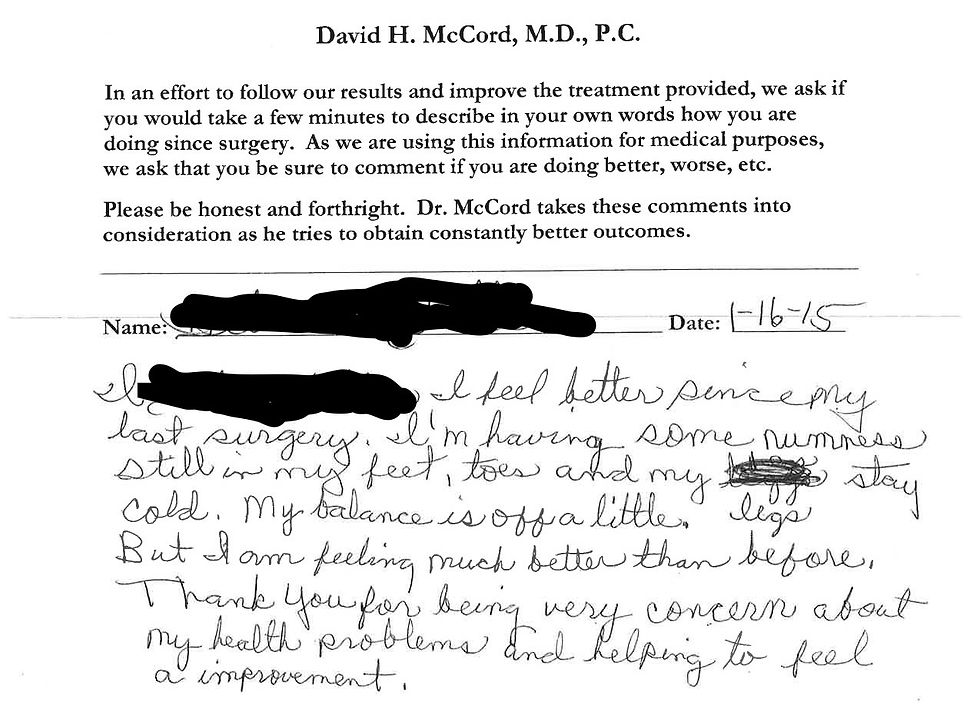 David H. McCord, M.D., P.C.
In an effort to follow our results and improve the treatment provided, we ask if
you would take a few minutes to describe in your own words how you are
doing since surgery. As we are using this information for medical purposes,
we ask that you be sure to comment if you are doing better, worse, etc.
Please be honest and forthright. Dr. McCord takes these comments into
consideration as he tries to obtain constantly better outcomes.
Name: Date: 1-16-15
I I feel better since my
last surgery. I'm having some numness
still in my feet, toes and my stay
cold. My balance is off a little. legs
But I am feeling much better than before.
Thank You for being very concern about
my health problems and helping to feel
a improvement.